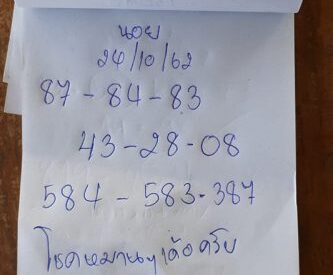 นอย
24/10/62
87-84-83
43-28-08
584-583-387
โชคหมานๆเด้อครับ